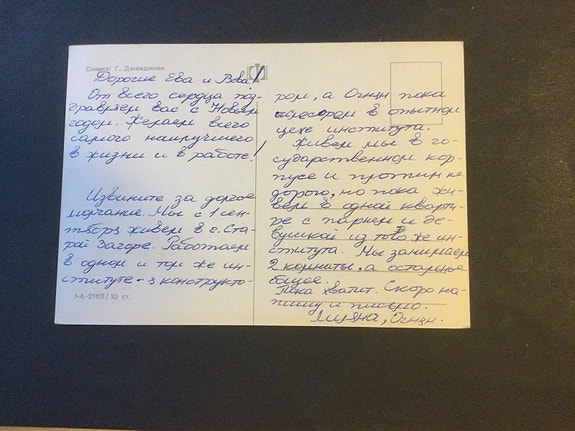 Снимка: Г. Джамджиев
Дорогие Ева и Вова!
От всего сердца поз-
дравляем вас с Новым
годом. Желаем всего
самого наилучшего
в жизни и в работе!
Извините за долгое
молчание. Мы с 1 сен-
тября живем в г. Ста-
рой Загоре. Работаем
в одном и том же ин-
ституте - я конструкто-
I-A-2162 / 10 ст.
ром, а Огнян пока
в опытном
цехе института.
Живем мы в го-
сударственном кор-
пусе и не
дорого, но пока жи-
вем в одной кварти-
ре с парнем и де-
вушкой из того же ин-
ститута. Мы занимаем
2 комнаты, а остальное
общее.
Пока хватит. Скоро на-
пишу и письмо.
Огнян.